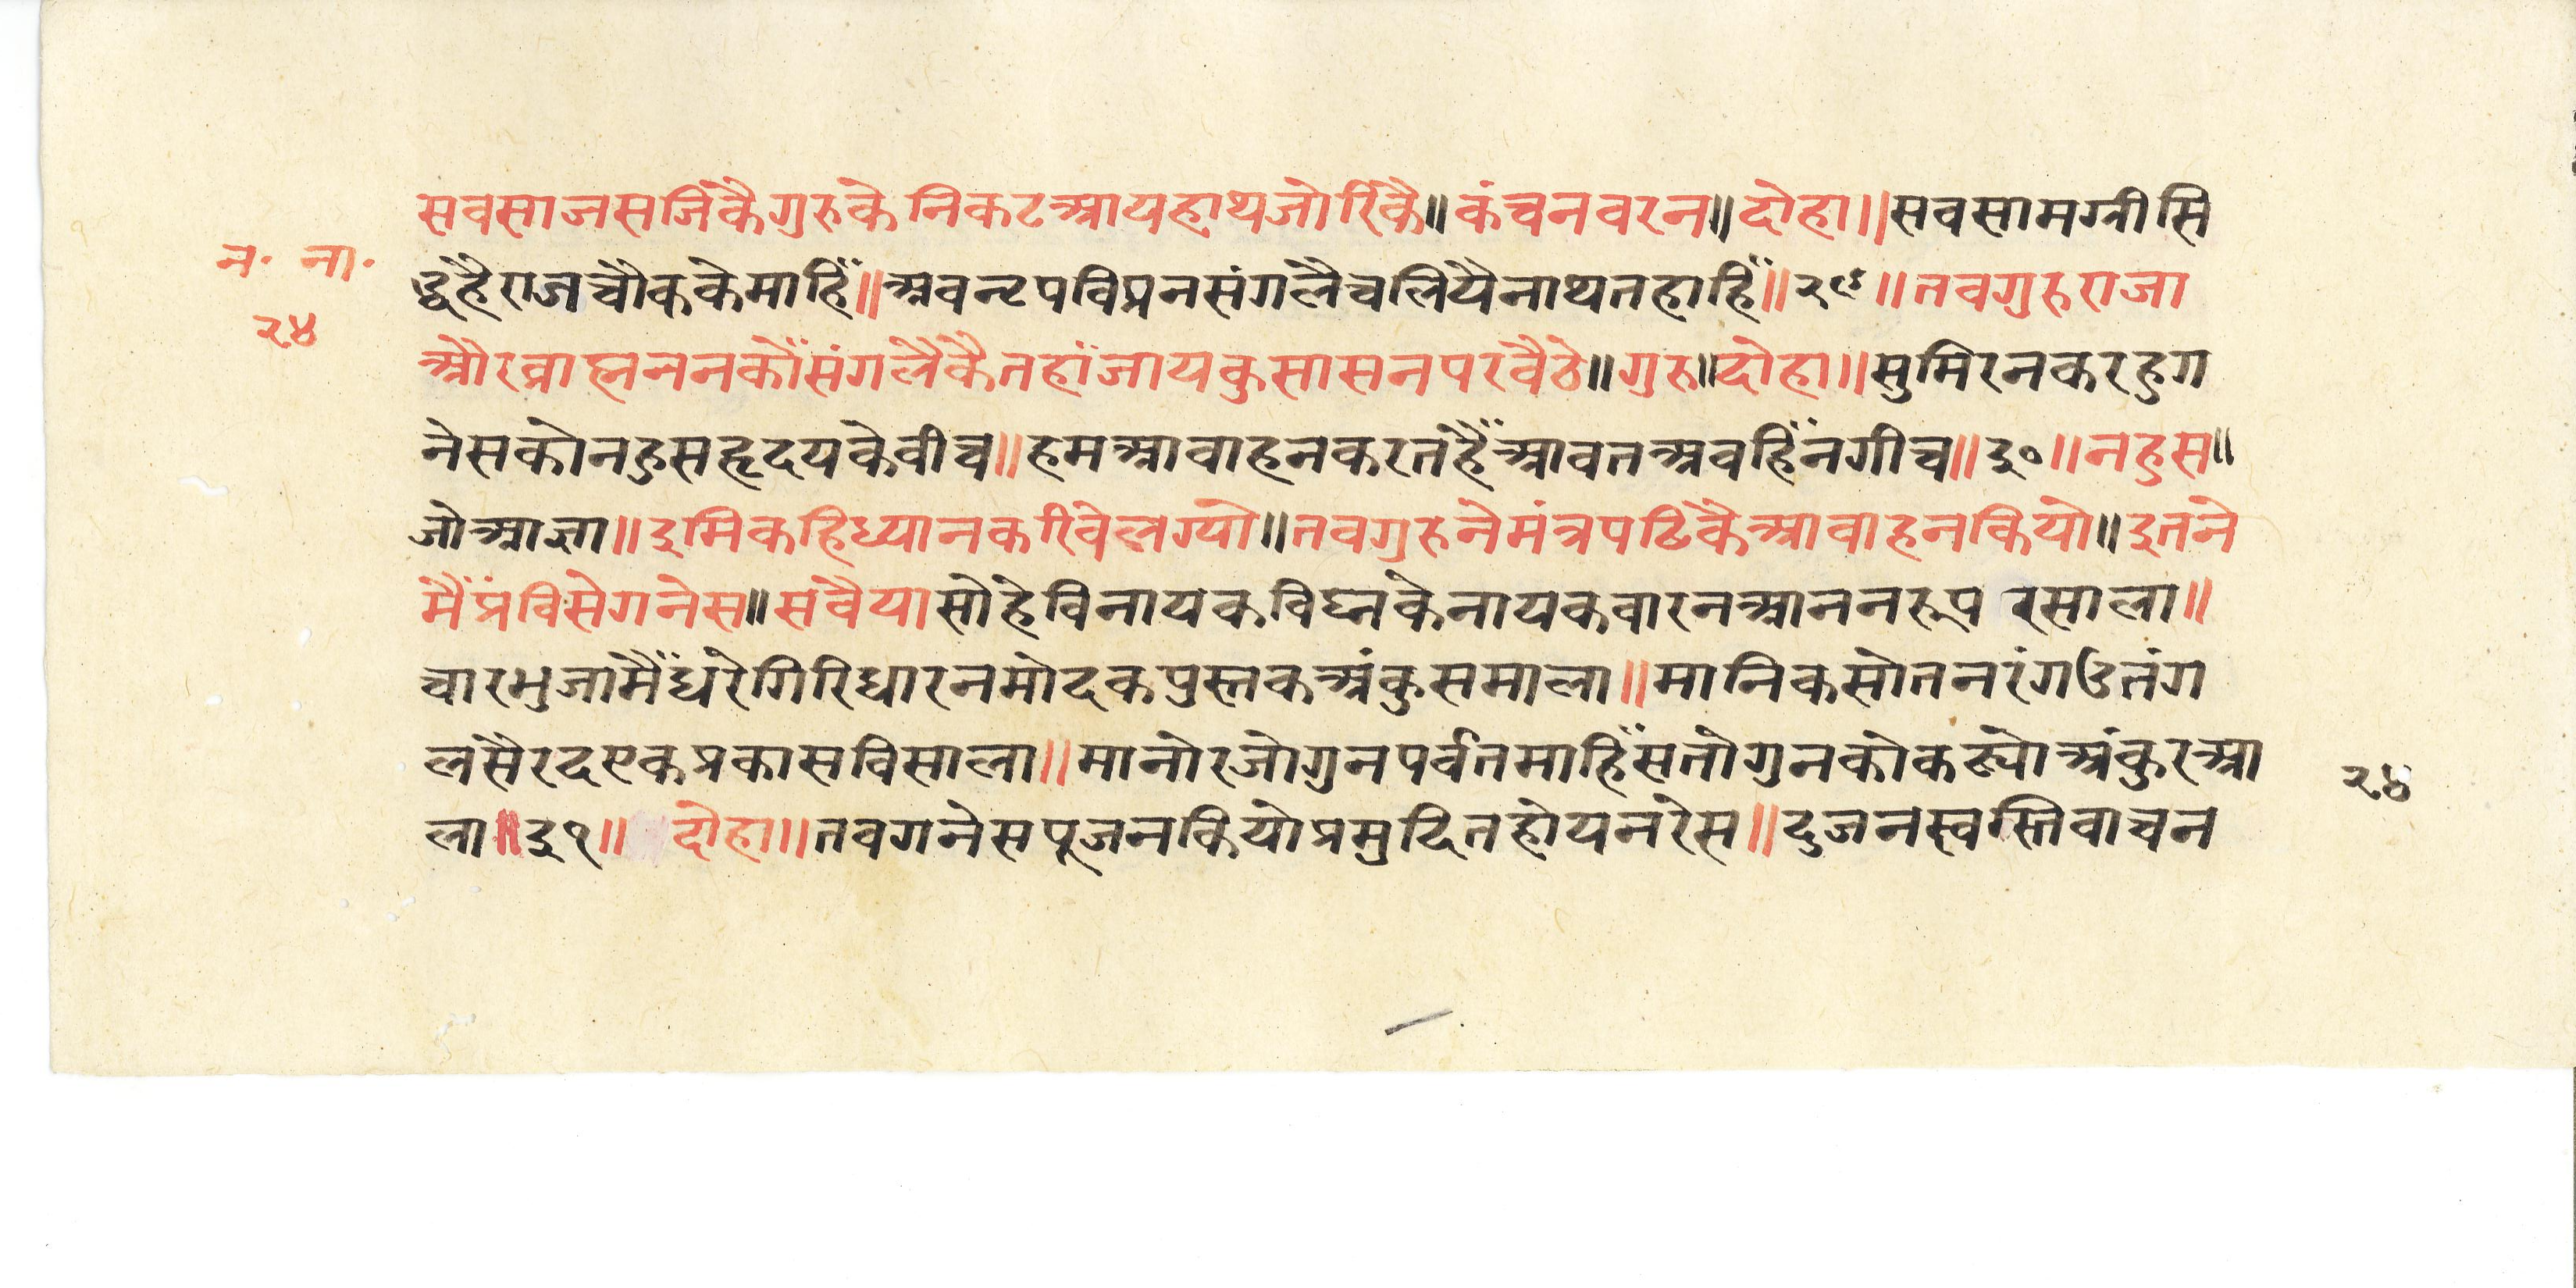 सवसाजसजिंकैगुरुके निकटआयहाथजोरिंकै॥कंचनवरन॥दोहा॥सवसामग्रीसि
न॰ ना॰
द्धहैराजचौककेमाहिँ॥अवन्टपविप्रनसंगलैचलियैनाथतहाहिँ॥२९॥तवगुरुराजा
२४
औरव्राह्मननकौँसंगलैकैतहांजायकुसासनपरवैठे॥गुरु॥दोहा॥सुमिरनकरहुग
नेसकोनहुसहृदयकेवीच॥हमआवाहनकरतहैँआवतअवहिँनगीच॥३०॥नहुस॥
जोआज्ञा॥इमिकहिध्यानकरिवेलग्यो॥तवगुरुनेमंत्रपढिकैआवाहनकियो॥इतने
मैँप्रविसेगनेस॥सवैयासोहेविनायकविघ्नकेनायकवारनआननरूप रसाला॥
चारभुजामैँधरेगिरिधारनमोदकपुस्तकअंकुसमाला॥मानिकसोतनरंगउतंग
लसैरदएकप्रकासविसाला॥मानोरजोगुनपर्वतमाहिँसतोगुनकोकढ्योअंकुरआ
२४
ला॥३१॥ दोहा॥तवगनेसपूजनकियोप्रमुदितहोयनरेस॥दुजनस्वस्तिवाचन